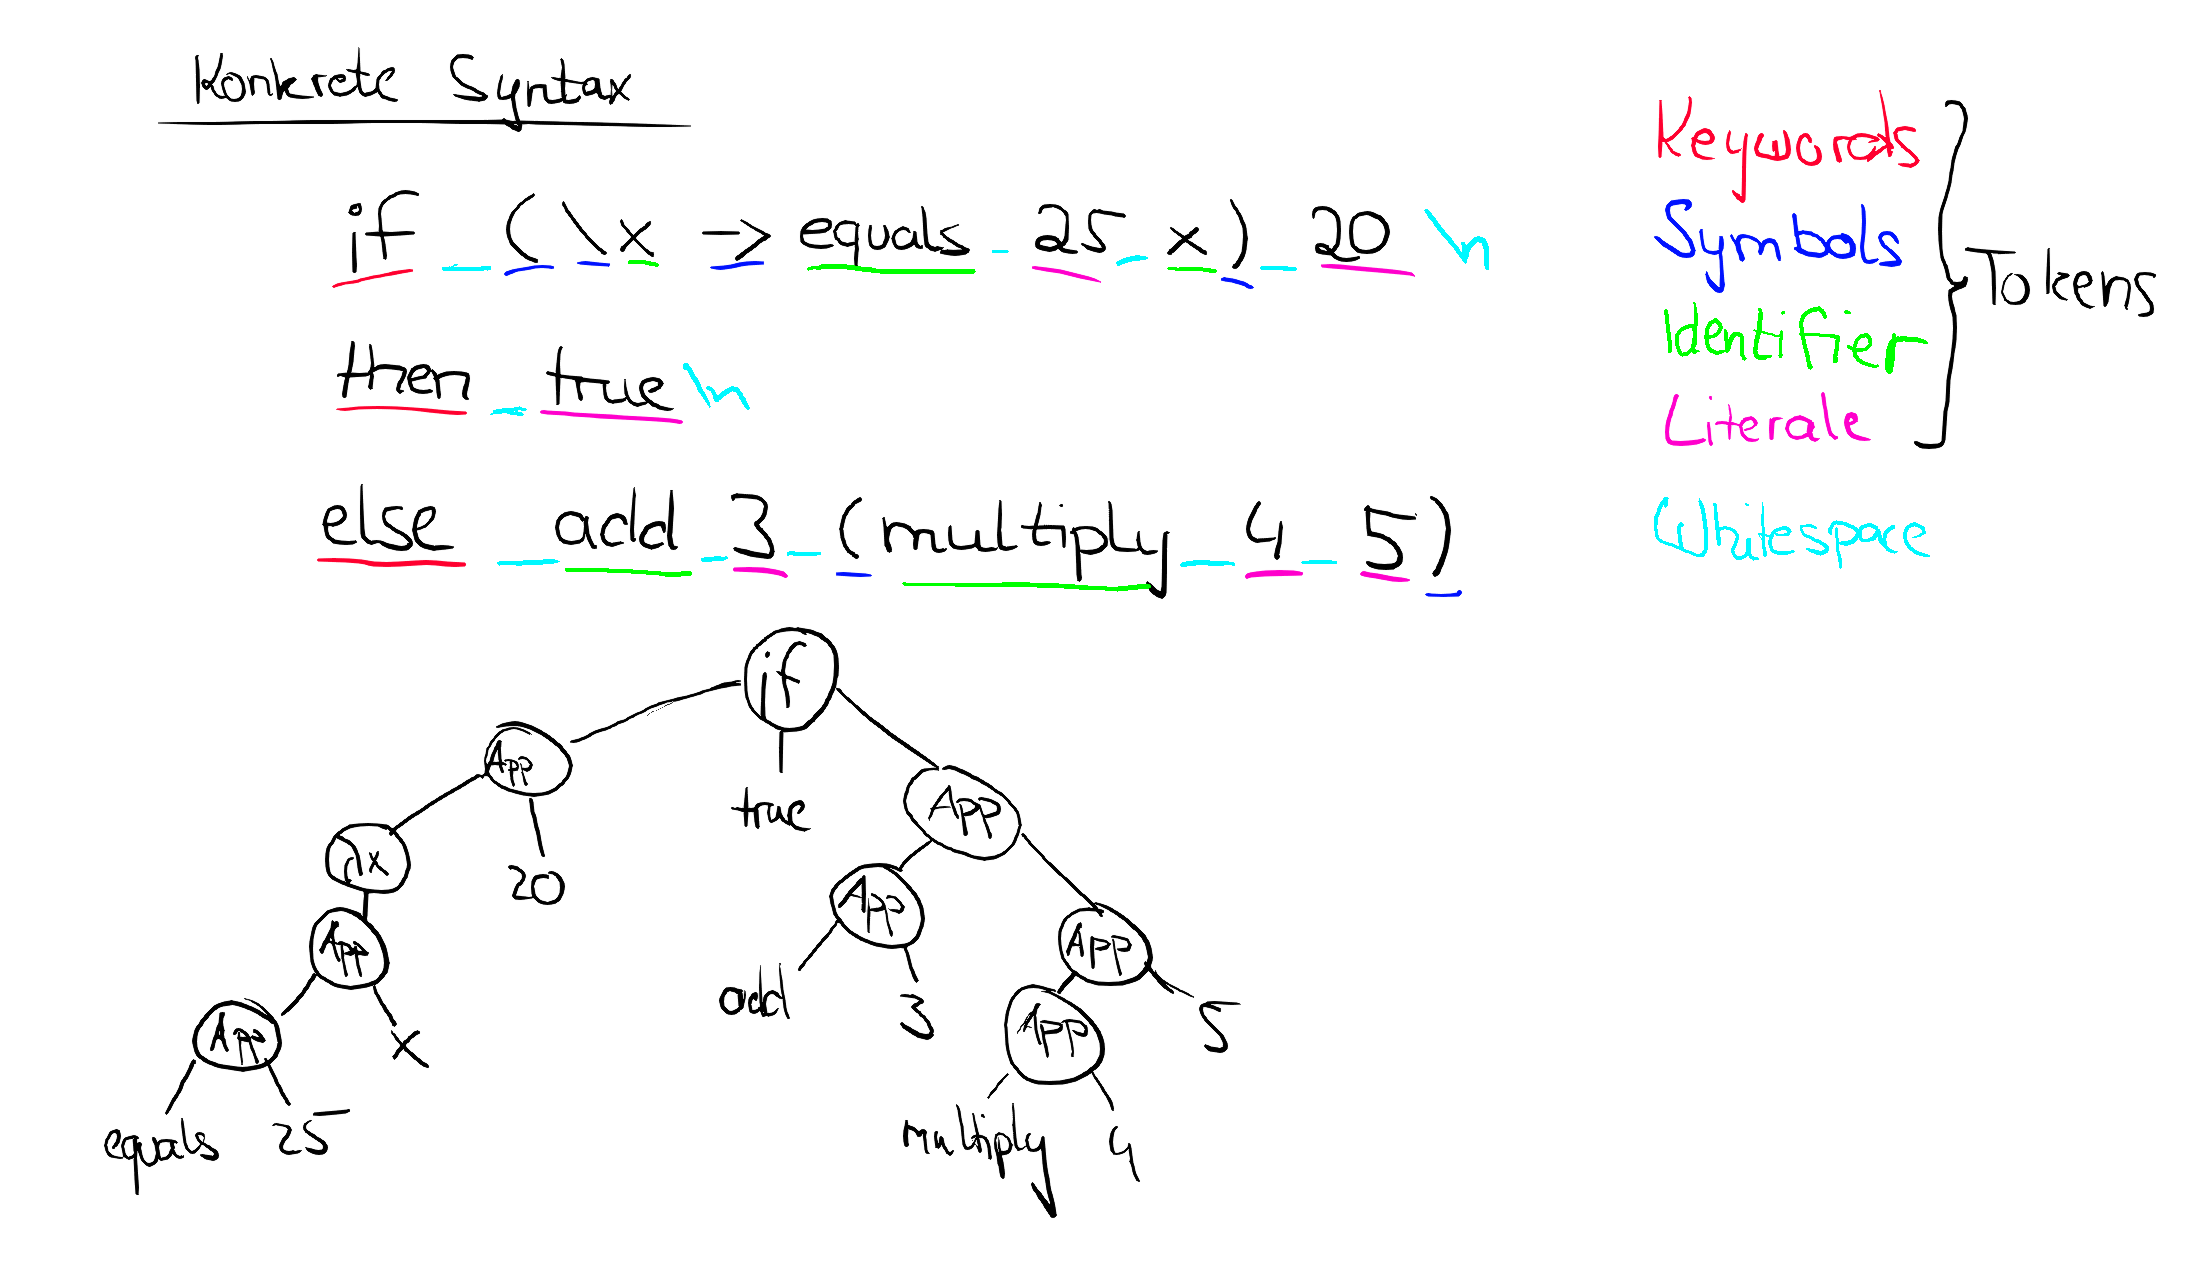 Konkrete Syntax
if _ (\x -> equals _ 25 _ x) _ 20 \n
then _ true \n
else _ add _ 3 _ (multiply _ 4 _ 5)
Keywords
Symbols
Identifier
Literale
Tokens
Whitespace
if
App
true
App
λx
20
App
App
App
add
3
App
App
x
App
5
equals
25
multiply
4